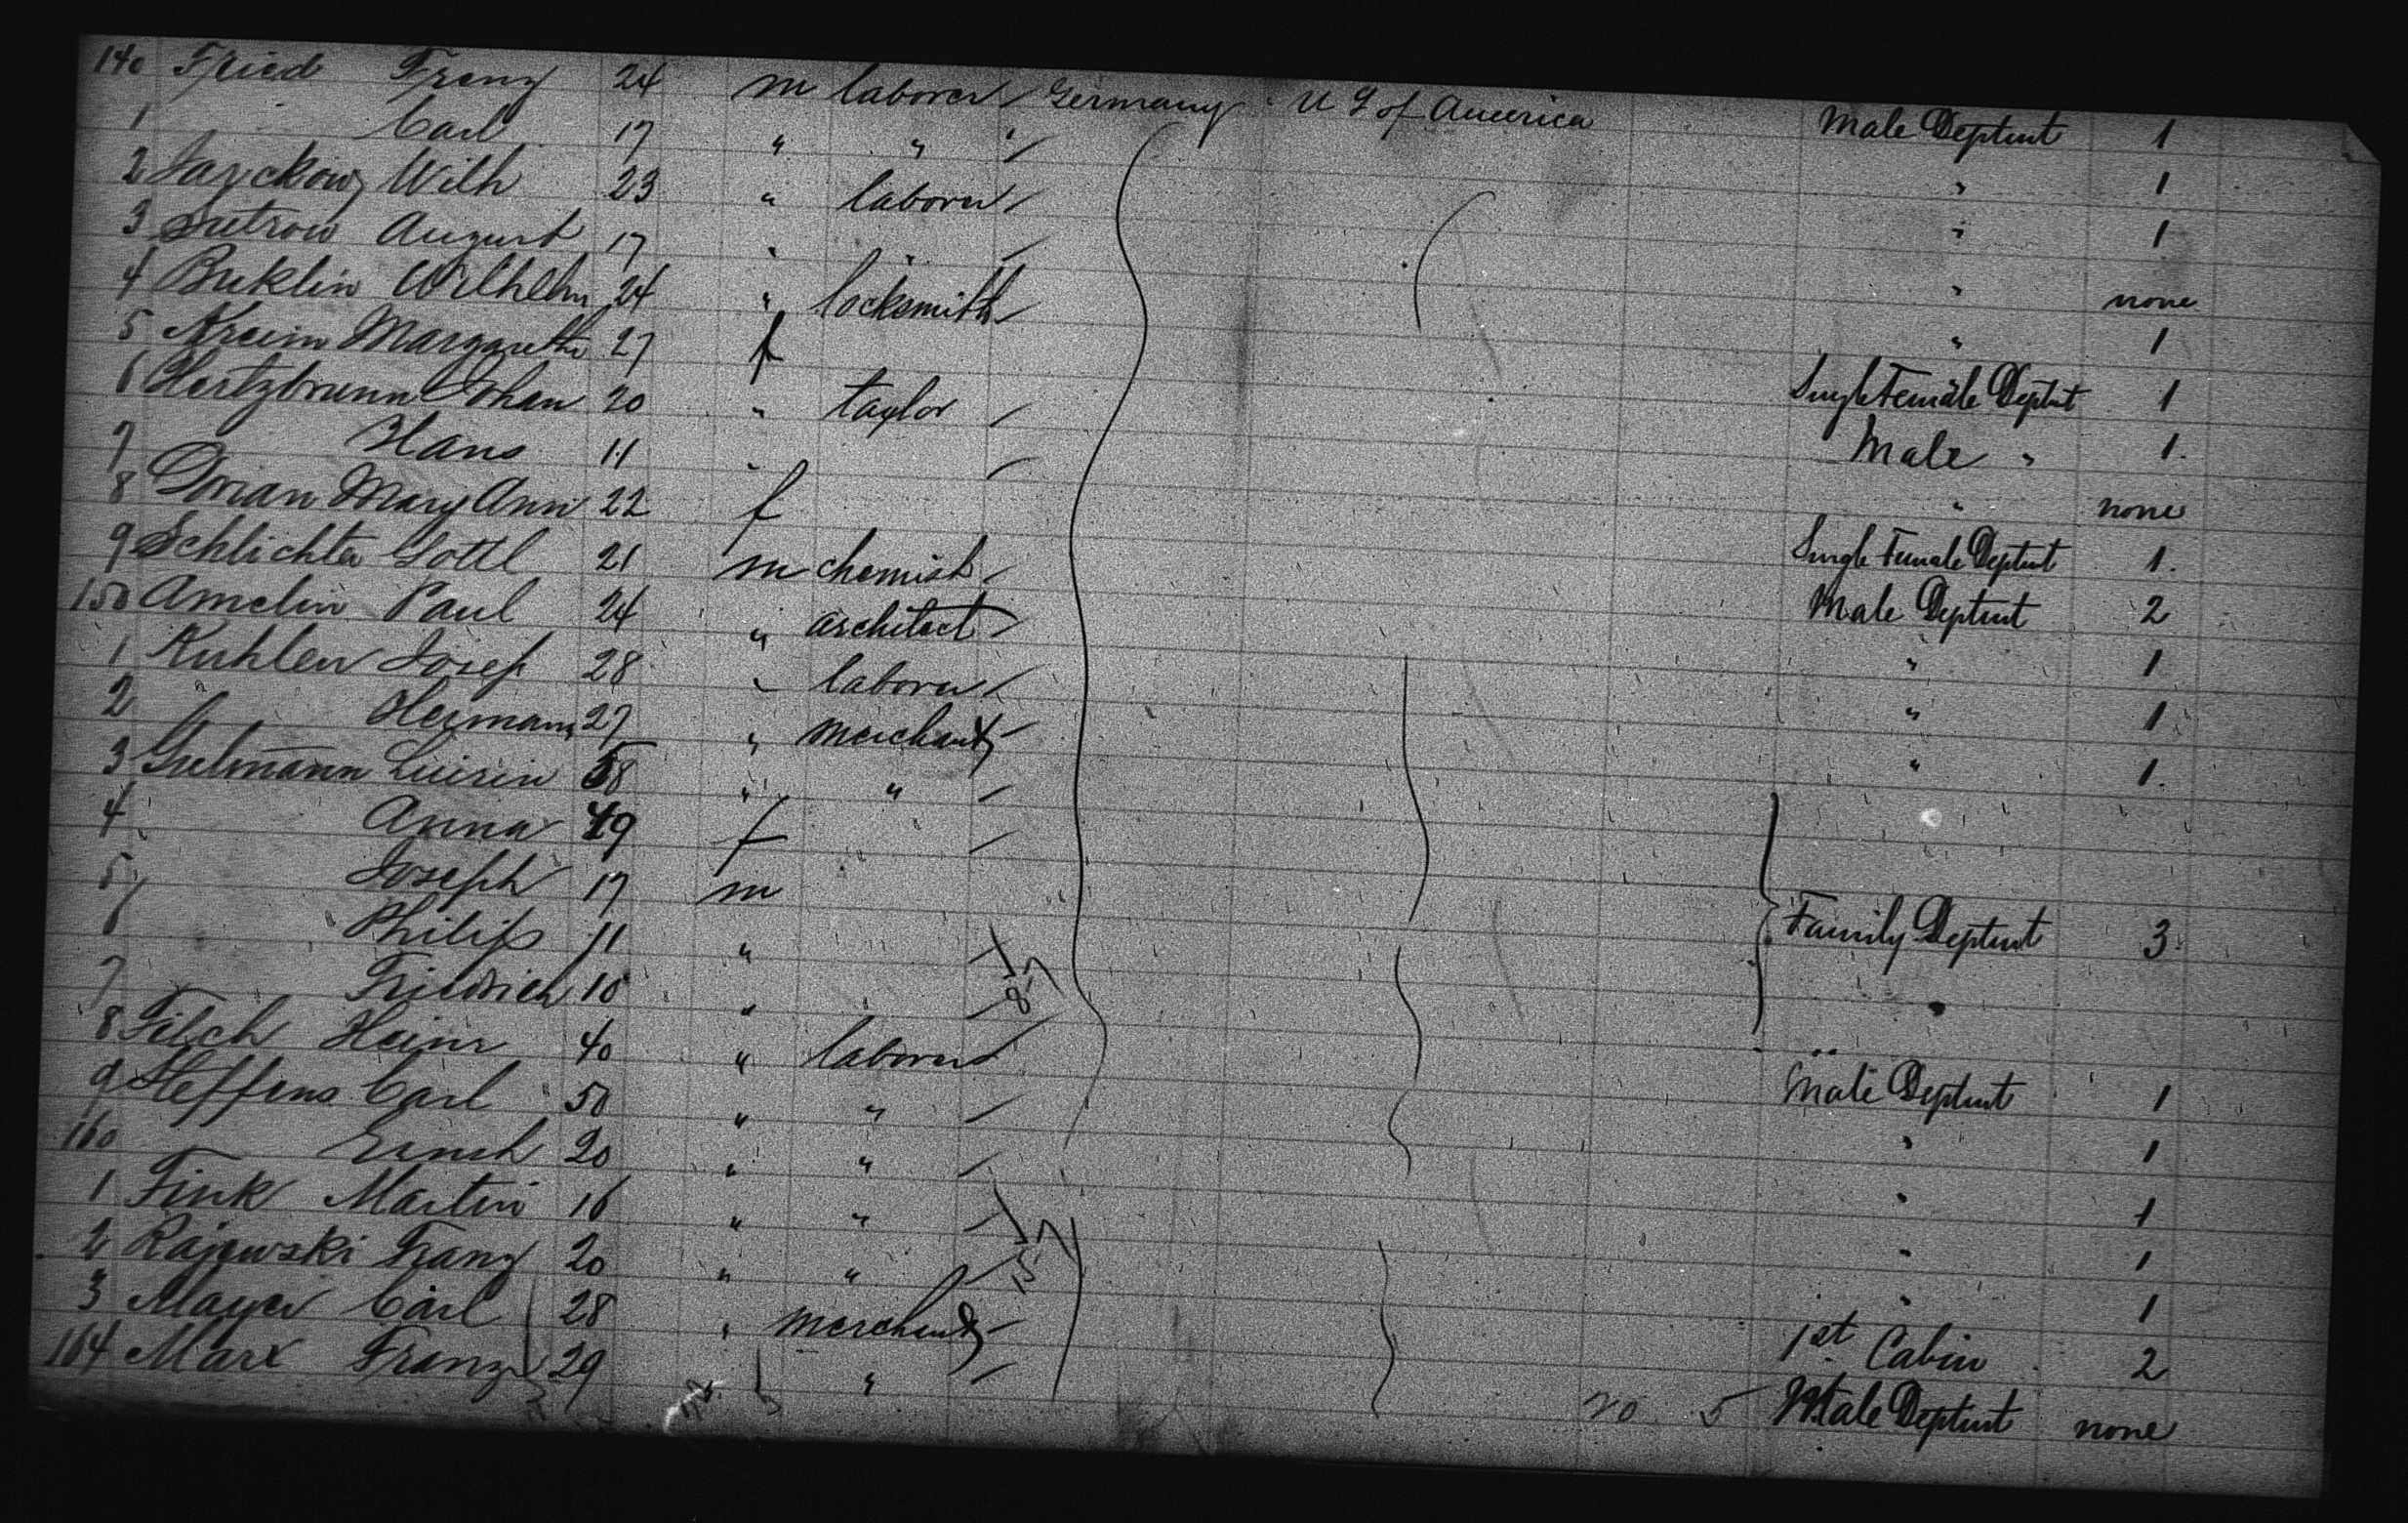 140 Fried Franz 24 m laborer Germany U S of America Male Deptmt 1
1 Carl 17 " " " 1
2 Wilh 23 " laborer " 1
3 Sutrow August 17 " " " none
4 Buklin Wilhelm 24 " locksmith " 1
5 Margarethe 27 f Single Female Deptmt 1
6 Hertzbrunn Johan 20 " taylor Male " 1
7 Hans 11 " " none
8 Dorian Mary Ann 22 f Single Female Deptmt 1
9 Schlichte Gottl 21 m chemist Male Deptmt 2
150 Amelin Paul 24 " architect " 1
1 Kuhlen Josef 28 " laborer " 1
2 " Hermann 27 " merchant " 1
3 58 " "
4 Anna 49 f
5 Joseph 17 m
6 Philip 11 " Family Deptmt 3
7 Friedrich 10 "
8 Filch Heinr 40 " laborer Male Deptmt 1
9 Steffens Carl 50 " " " 1
160 Ernst 20 " " " 1
1 Fink Martin 16 " " " 1
2 Rajewski Franz 20 " " " 1
3 Mayer Carl 28 " merchant 1st Cabin 2
164 Marx Franz 29 " 20 5 Male Deptmt none